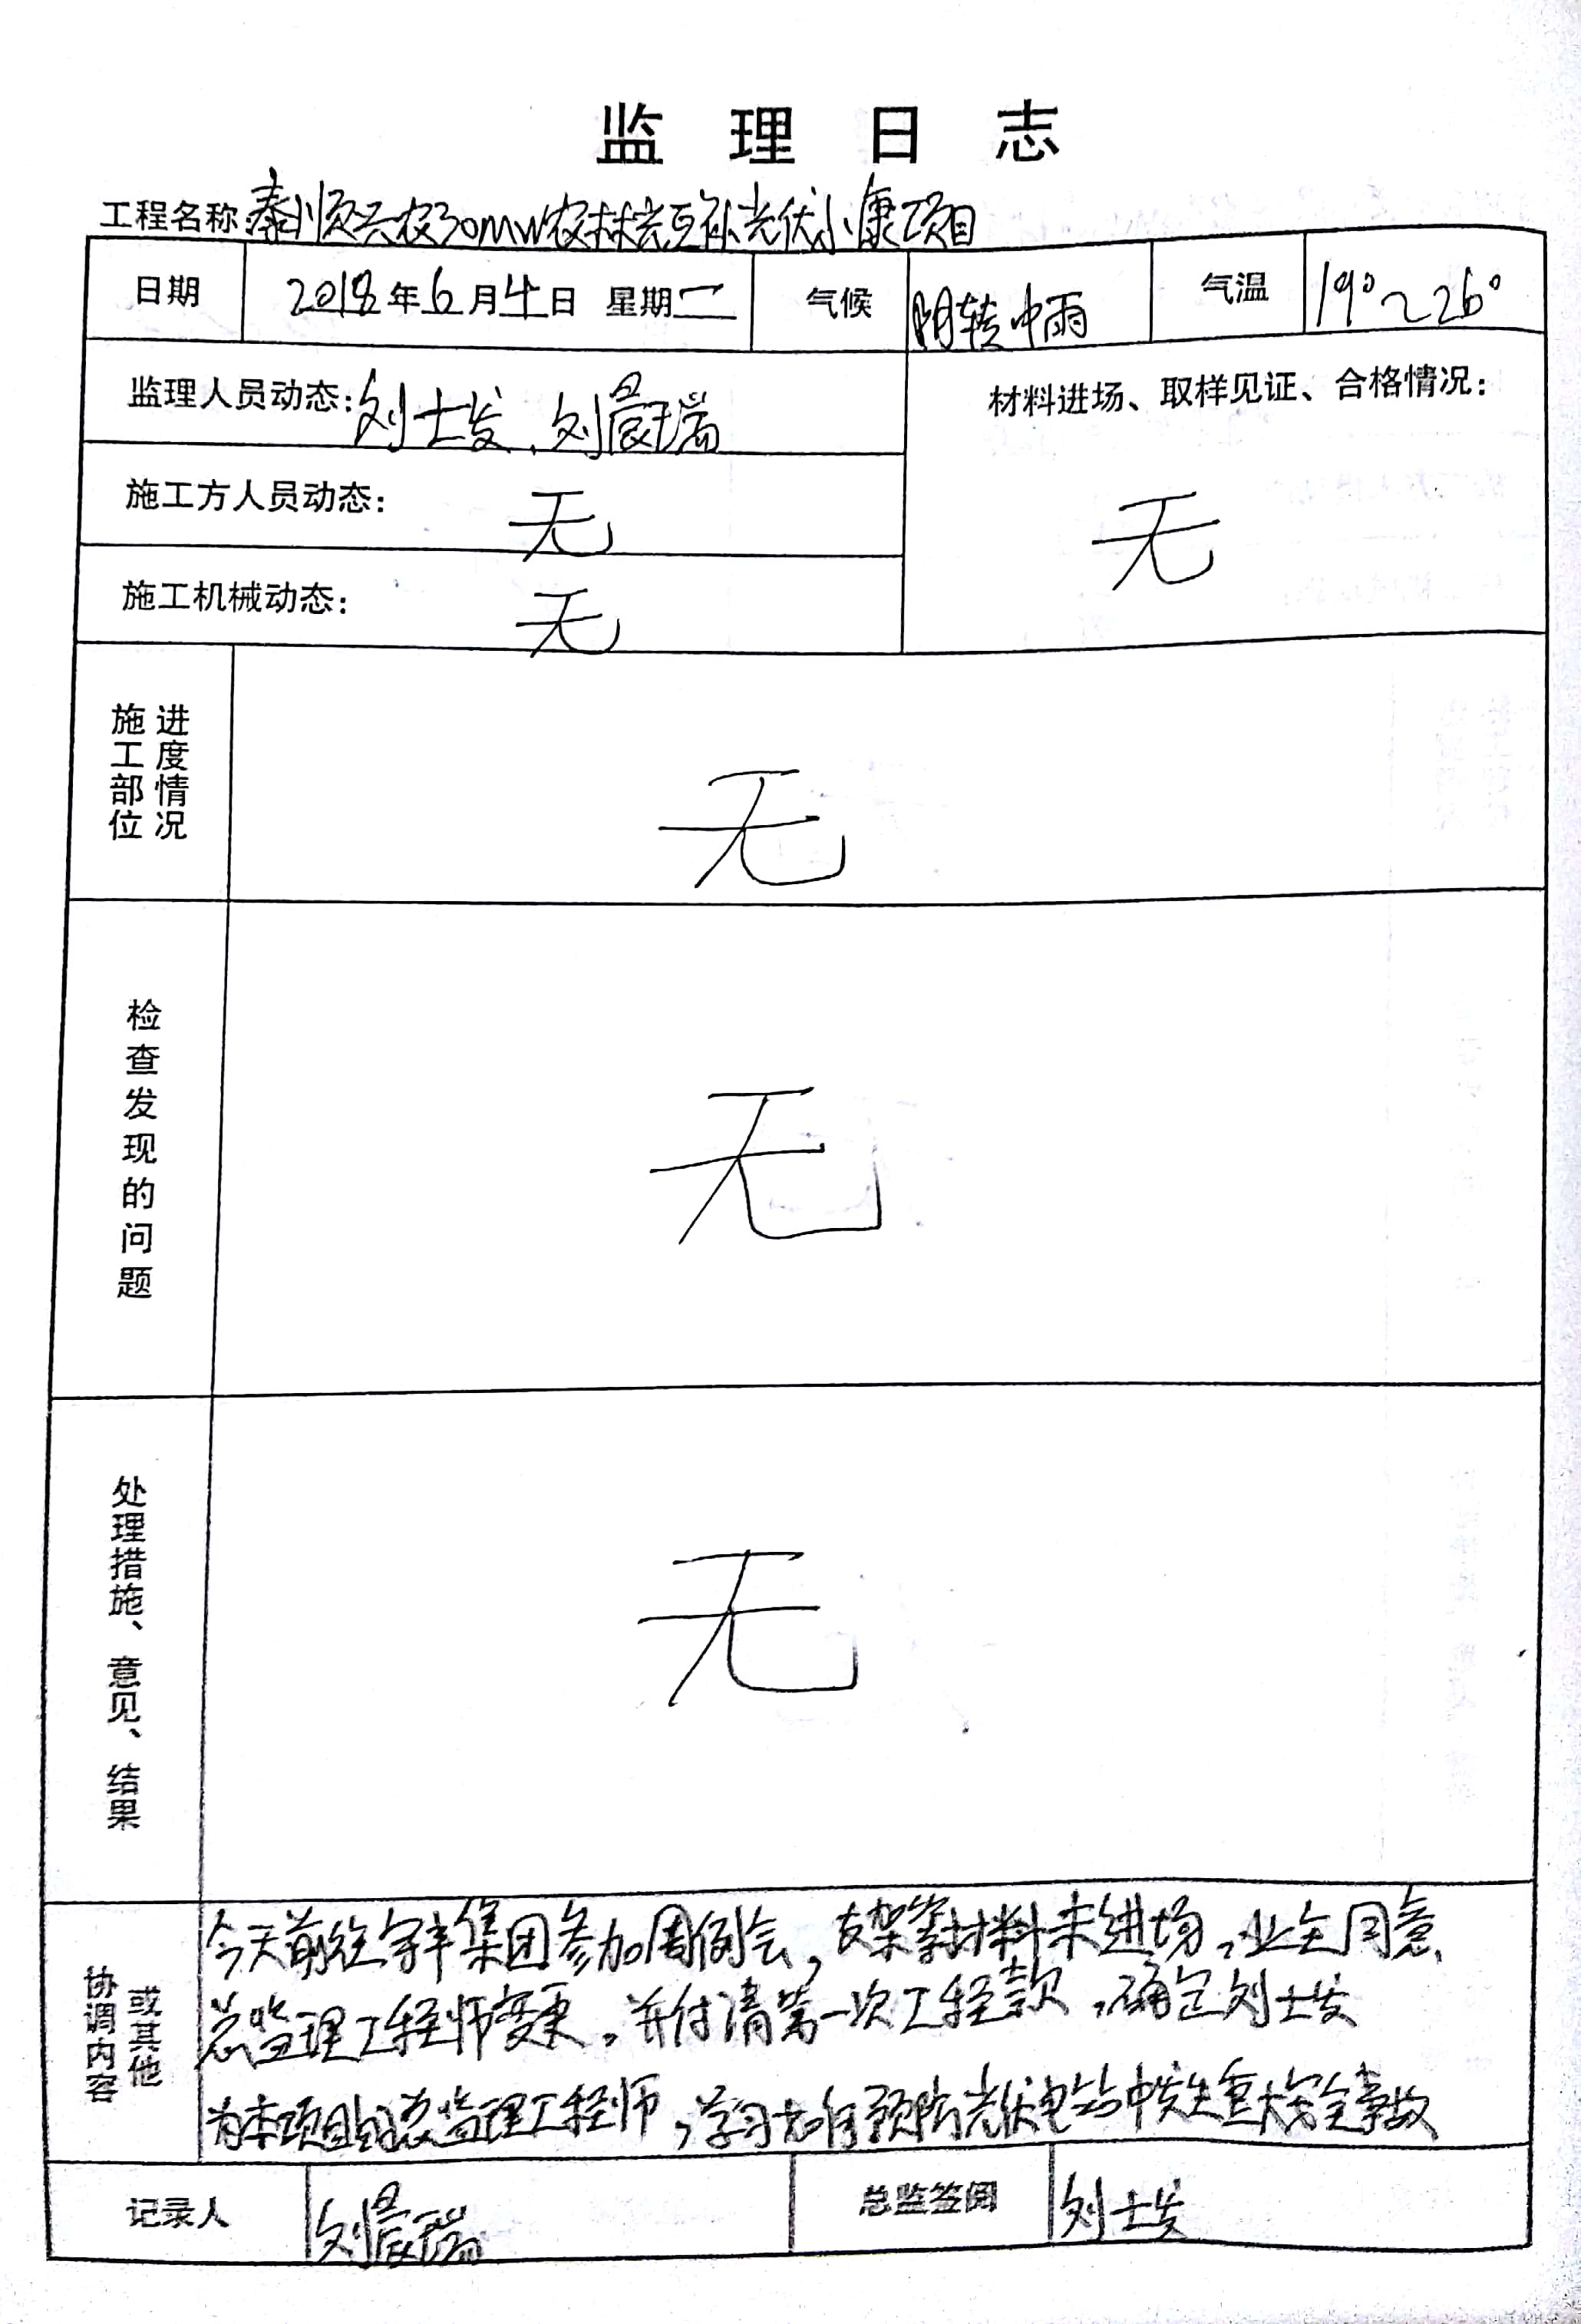 监理日志
工程名称:泰顺兴农30MW农林光互补光伏小康项目
日期 2018年6月4日 星期二 气候 阴转中雨 气温 19°~26°
监理人员动态:刘士发、刘晨瑞
材料进场、取样见证、合格情况:
无
施工方人员动态: 无
施工机械动态: 无
施工部位 进度情况
无
检查发现的问题
无
处理措施、意见、结果
无
协调内容 或其他
今天前往 集团参加周例会,支架等材料未进场,业主同意
总监理工程师变更,并付清第一次工程款,确定刘士发
为本项目的总监理工程师,学习如何预防光伏电站中发生重大安全事故
记录人 刘晨瑞 总监签阅 刘士发